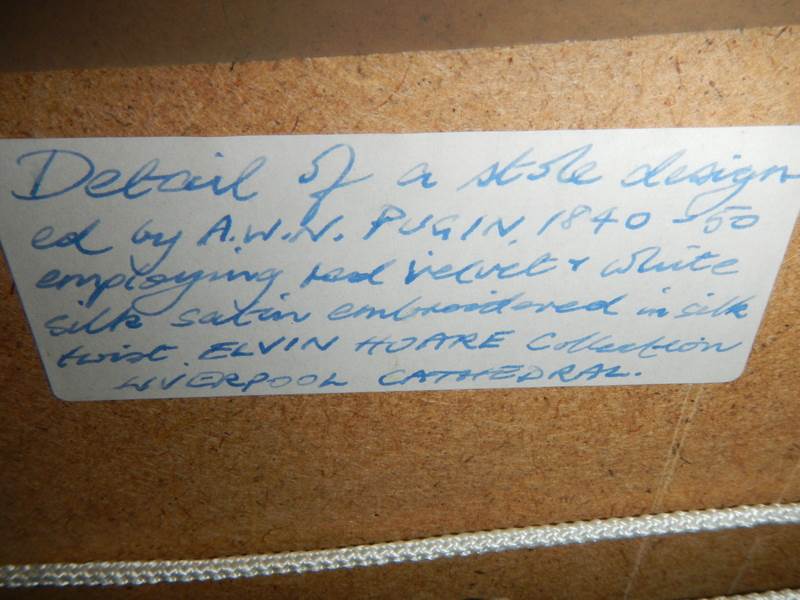 Detail of a stole design
ed by A.W.N. PUGIN, 1840-50
employing red velvet & white
silk satin embroidered in silk
twist. ELVIN HOARE Collection
LIVERPOOL CATHEDRAL.